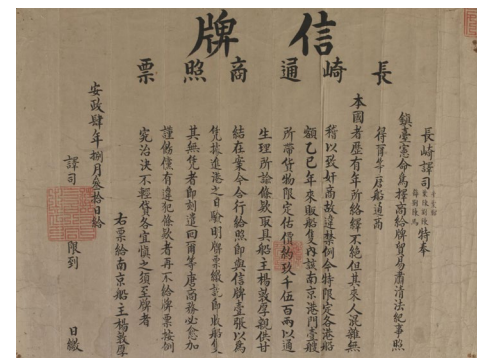 信牌
長崎通商照票
長崎譯司
特奉
鎮臺憲命爲擇商給牌貿易肅清法紀事照
得爾等唐船通商
本國者歷有年所絡繹不絕但其來人混雜無
稽以致奸商故違禁例今特限定各港船
額乙巳年來販船隻內該南京港門壹艘
所帶貨物限定估價約玖千伍百兩以通
生理所諭條款取具船主楊敦厚親供甘
結在案今合行給照即與信牌壹張以爲
凭據進港之日驗明牌票繳訖即收船隻
其無凭者即刻遣回爾等唐商務必愈加
謹飭倘有違犯條款者再不給牌票按例
究治決不輕貸各宜慎之須至牌者
右票給南京船主楊敦厚
安政肆年捌月叁拾日給
譯司
限到
日繳